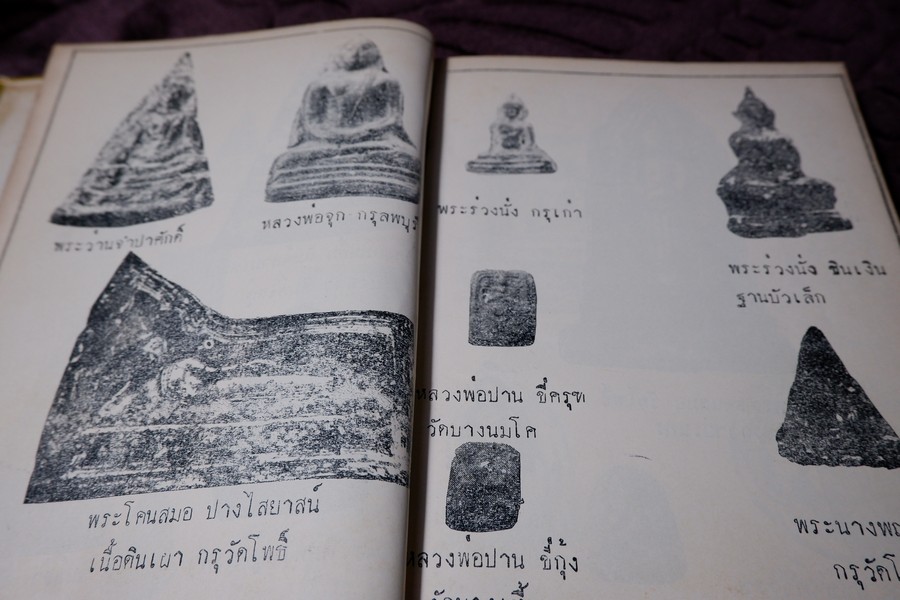 พระว่านจำปาศักดิ์
หลวงพ่อจุก กรุลพบุรี
พระโคนสมอ ปางไสยาสน์
เนื้อดินเผา กรุวัดโพธิ์
พระร่วงนั่ง กรุเก่า
พระร่วงนั่ง ชินเงิน
ฐานบัวเล็ก
หลวงพ่อปาน ขี่ครุฑ
วัดบางนมโค
หลวงพ่อปาน ขี่กุ้ง
พระนางพญา
กรุวัดโ